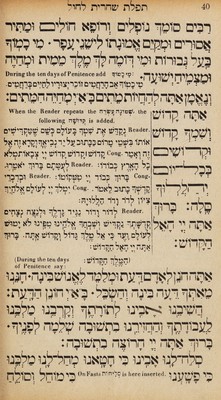 תפלת שחרית לחול 40
רַבִּים סוֹמֵךְ נוֹפְלִים וְרוֹפֵא חוֹלִים וּמַתִּיר
אֲסוּרִים וּמְקַיֵּם אֱמוּנָתוֹ לִישֵׁנֵי עָפָר· מִי כָמוֹךָ
בַּעַל גְּבוּרוֹת וּמִי דוֹמֶה לָּךְ מֶלֶךְ מֵמִית וּמְחַיֶּה
וּמַצְמִיחַ יְשׁוּעָה: During the ten days of Penitence add
מִי כָמוֹךָ אַב הָרַחֲמִים זוֹכֵר יְצוּרָיו לְחַיִּים בְּרַחֲמִים
וְנֶאֱמָן אַתָּה לְהַחֲיוֹת מֵתִים· בָּרוּךְ אַתָּה יְיָ מְחַיֵּה הַמֵּתִים:
אַתָּה קָדוֹשׁ
וְשִׁמְךָ קָדוֹשׁ
וּקְדוֹשִׁים
בְּכָל־יוֹם
יְהַלְלוּךָ
סֶּלָה: בָּרוּךְ
אַתָּה יְיָ הָאֵל
הַקָּדוֹשׁ:
When the Reader repeats the שמנה עשרה the
following קדושה is added.
Reader. נְקַדֵּשׁ אֶת שִׁמְךָ בָּעוֹלָם כְּשֵׁם שֶׁמַּקְדִּישִׁים
אוֹתוֹ בִּשְׁמֵי מָרוֹם כַּכָּתוּב עַל יַד נְבִיאֶךָ וְקָרָא זֶה אֶל
זֶה וְאָמַר· Cong. קָדוֹשׁ קָדוֹשׁ קָדוֹשׁ יְיָ צְבָאוֹת מְלֹא
כָל הָאָרֶץ כְּבוֹדוֹ: Reader. לְעֻמָּתָם בָּרוּךְ יֹאמֵרוּ·
Cong. בָּרוּךְ כְּבוֹד יְיָ מִמְּקוֹמוֹ: Reader. וּבְדִבְרֵי
קָדְשְׁךָ כָּתוּב לֵאמֹר· Cong. יִמְלֹךְ יְיָ לְעוֹלָם אֱלֹהַיִךְ
צִיּוֹן לְדֹר וָדֹר הַלְלוּיָהּ:
Reader. לְדוֹר וָדוֹר נַגִּיד גָּדְלֶךָ וּלְנֵצַח נְצָחִים
קְדֻשָּׁתְךָ נַקְדִּישׁ וְשִׁבְחֲךָ אֱלֹהֵינוּ מִפִּינוּ לֹא יָמוּשׁ
לְעוֹלָם וָעֶד כִּי אֵל מֶלֶךְ גָּדוֹל וְקָדוֹשׁ אָתָּה· בָּרוּךְ
אַתָּה יְיָ הָאֵל הַקָּדוֹשׁ:
(During the ten days
of Penitence say: הַמֶּלֶךְ הַקָּדוֹשׁ:)
אַתָּה חוֹנֵן לְאָדָם דַּעַת וּמְלַמֵּד לֶאֱנוֹשׁ בִּינָה· חָנֵּנוּ
מֵאִתְּךָ דֵּעָה בִּינָה וְהַשְׂכֵּל· בָּרוּךְ אַתָּה יְיָ חוֹנֵן הַדָּעַת:
הֲשִׁיבֵנוּ אָבִינוּ לְתוֹרָתֶךָ וְקָרְבֵנוּ מַלְכֵּנוּ
לַעֲבוֹדָתֶךָ וְהַחֲזִירֵנוּ בִּתְשׁוּבָה שְׁלֵמָה לְפָנֶיךָ·
בָּרוּךְ אַתָּה יְיָ הָרוֹצֶה בִּתְשׁוּבָה:
סְלַח־לָנוּ אָבִינוּ כִּי חָטָאנוּ מְחַל־לָנוּ מַלְכֵּנוּ
כִּי פָשָׁעְנוּ On Fasts סליחות is here inserted. כִּי מוֹחֵל וְסוֹלֵחַ